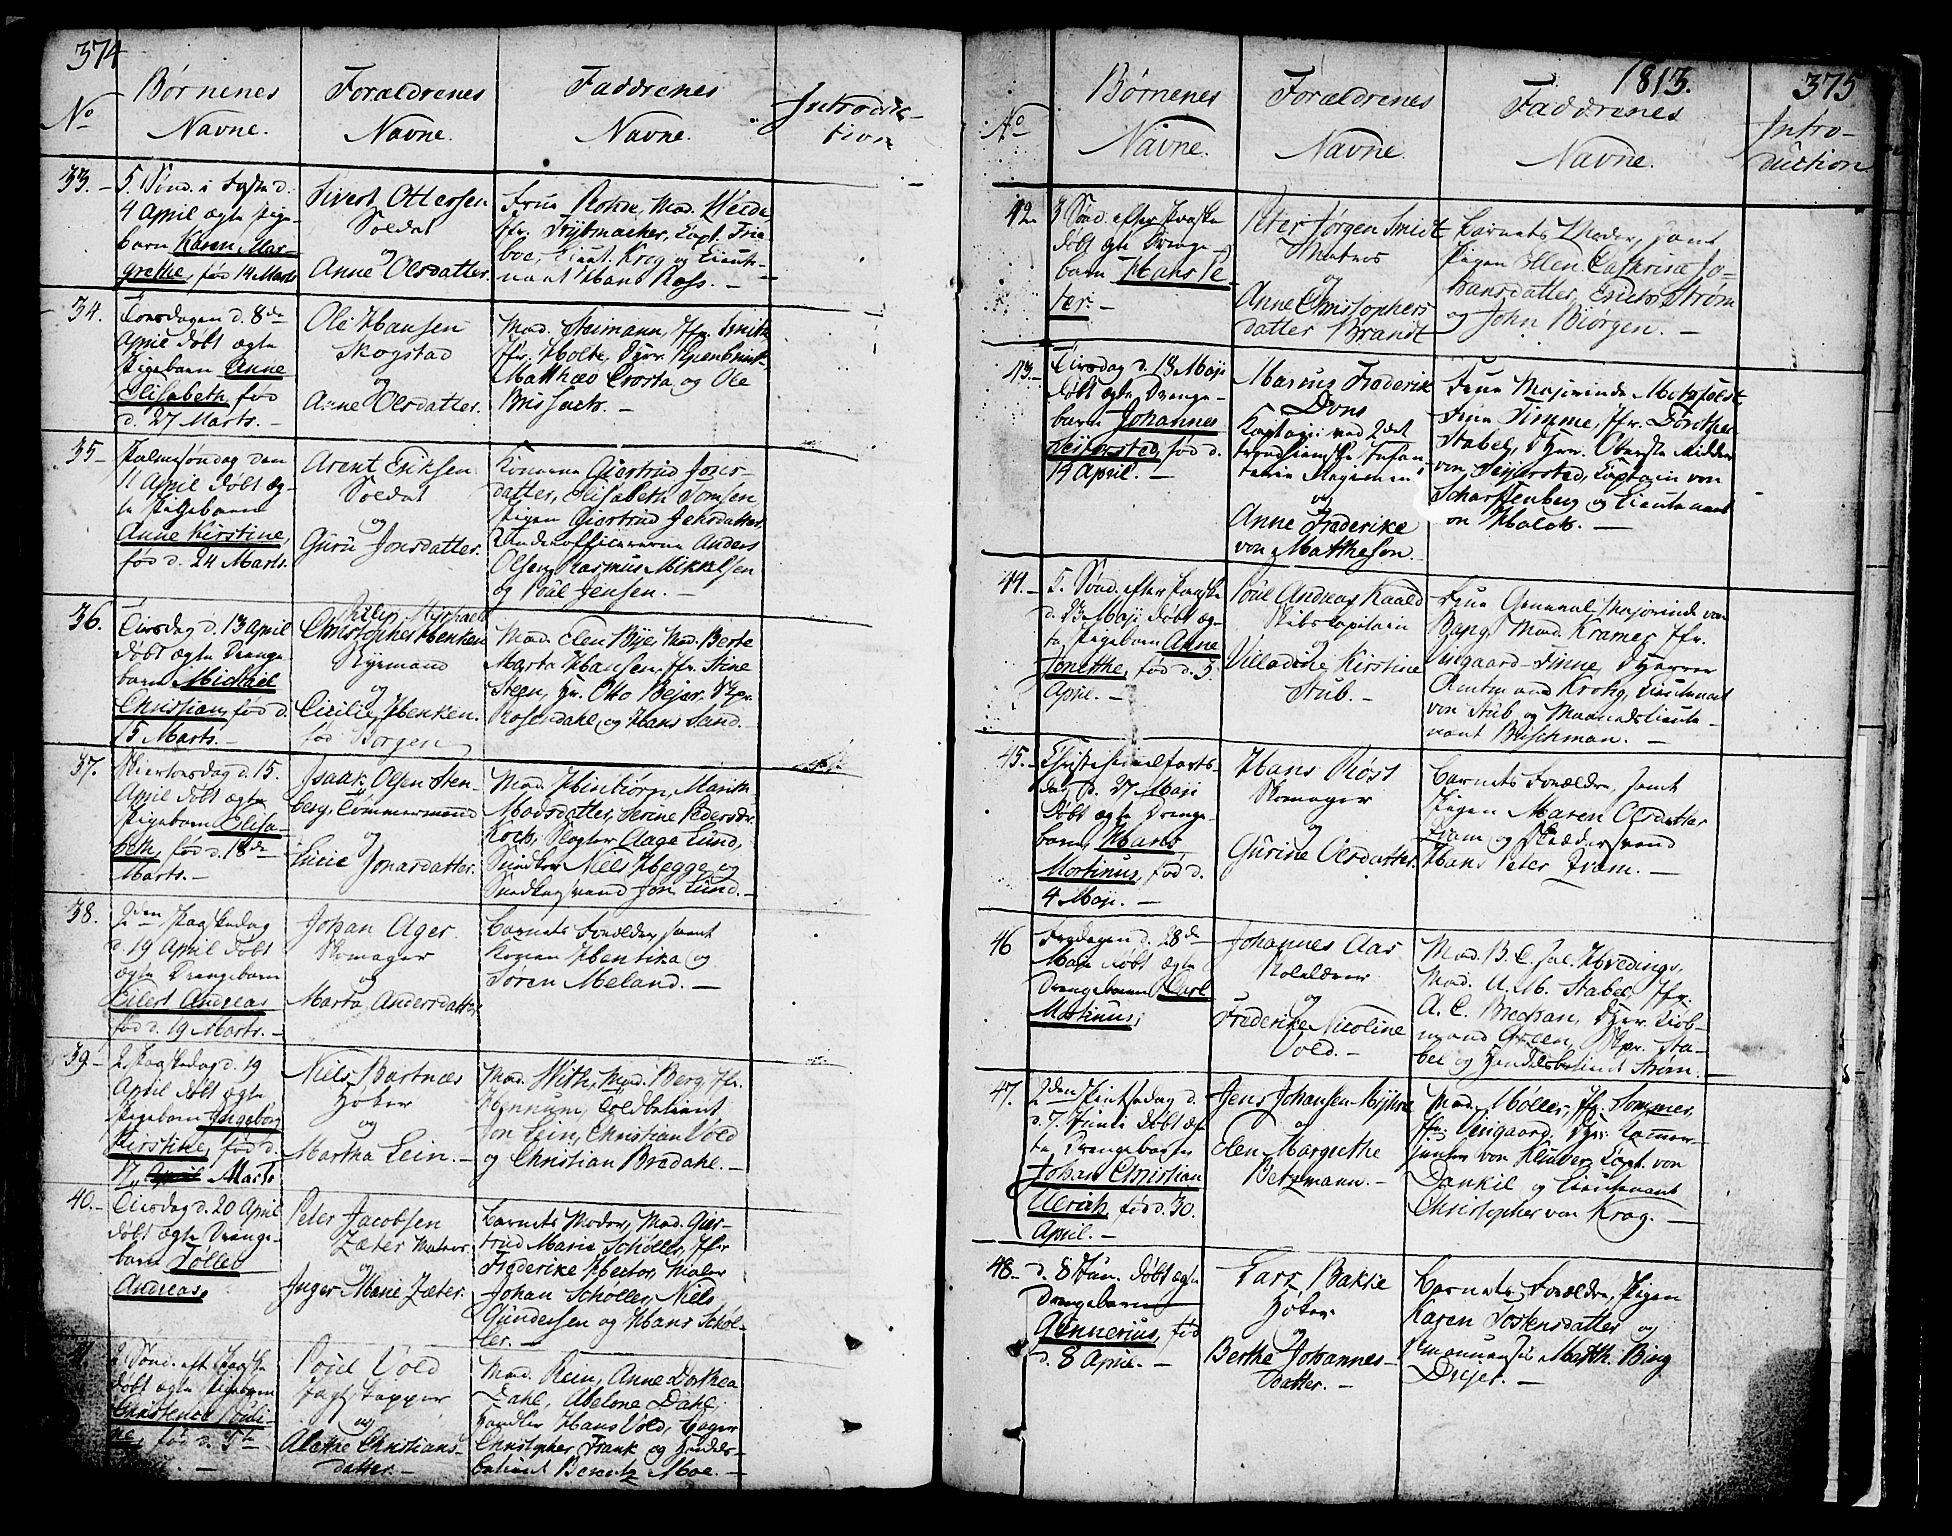 374
No
Børnenes
Navne.
Forældrenes
Navne.
Faddrenes
Navne.
Introduc-
tion
33.
5. Sønd. i Faste d.
4 April ægte Pige-
barn Karen Mar-
grethe, fød 14 Marts
Sivert Ottersen
Soldat
og
Anne Olsdatter.
Frue Rohde, Mad. Weide
Capt. Frie-
boe, Lieut. Krog og Lieute-
nant Hans Ross. -
34.
Torsdagen d. 8de
April døbt ægte
Pigebarn Anne
Elisabeth, fød
d. 27 Marts. -
Ole Hansen
Skogstad
og
Anne Olsdatter.
Mad. Steimann, Jfr. Smith
Jfr. Holte,
Matthæs Crosta og Ole
35-
Palmesøndag den
11 April døbt æg-
te Pigebarn
Anne Kirstine,
fød d. 24 Marts.
Arent Eriksen
Soldat
og
Guru Jonsdatter.
Konerne Giertrud Jons-
datter, Elisabeth Tomsen
Pigen Giertrud Jensdatter,
Underofficererne Anders
Olsen, Rasmus Mikkelsen
og Poul Jensen. -
36.
Tirsdag d. 13 April
døbt ægte Drenge-
barn Michael
Christian, fød d.
15 Marts. -
Philip Michael
Christopher Henken
Styrmand
og
Cicilie Henken
fød Borgen
Mad. Elen Bye, Mad. Berte
Marta Hansen, Jfr. Stine
Steen, Hr. Otto Bejer, Skpr.
Rosendahl, og Hans Sand.
37.
Skiertorsdag d. 15.
April døbt ægte
Pigebarn Elisa-
beth, fød d. 18de
Marts. -
Isaak Olsen Sten-
berg, Tømmermand
og
Lucie Jonasdatter.
Mad. Hinbiørn, Marith
Madsdatter, Serine Pedersdr.
Koch, Slagter Clage Lund,
Snidker Niels Hegge og
Snidkersvend Jon Lund. -
38.
2den Paaskedag
d. 19 April døbt
ægte Drengebarn
Eilert Andreas
fød d. 19 Marts. -
Johan Ager.
Skomager
og
Marta Andersdatter
Barnets Forældre, samt
Konen Hentika og
Søren Meland. -
39-
2 Paaskedag d. 19
April døbt ægte
Pigebarn Ingeborg
Kirstine, fød d.
17 Marts
Niels Bartnæs
Høker
og
Martha Lein. -
Mad. With, Mad. Berg, Jfr.
Hennum, Toldbetient
Jon Lein, Christian Vold
og Christian Bredahl. -
40. -
Tirsdag d. 20 April
døbt ægte Drenge-
barn Tølle
Andreas,
Peter Jacobsen
Zæter Matros
og
Inger Marie Zæter.
Barnets Moder, Mad. Gier-
trud Marie Schøller, Jfr
Frederike Hertor, Maler
Johan Schøller, Niels
Gundersen og Hans Schøl-
ler. -
2 Sønd. eft. Paaske
døbt ægte Pigebarn
Christence Pauli-
ne, fød d. 5te
Poul Vold
Vagtstopper
og
Alethe Christians-
datter. -
Mad. Rein, Anne Dorthea
Dahl, Abelone Dahl,
Handler Hans Vold,
Christopher Frank og Handels-
betient Berentz Moe. -
1813.
375
No
Børnenes
Navne.
Forældrenes
Navne.
Faddrenes
Navne.
Intro-
duction
42
3 Sønd. efter Paaske
døbt ægte Drenge-
barn Hans Pe-
ter -
Peter Jørgen Smidt
Matros
og
Anne Christophers
datter Brandt
Barnets Moder, samt
Pigen Ellen Cathrine Jo-
hansdatter, Erich Strøm
og John Biørgen. -
43.
Tirsdag d. 18 Maji
døbt ægte Drenge-
barn Johannes
Seiersted, fød d.
14 April. -
Marcus Frederik
Dons
Kaptain ved 2det
trondhiemske Infan-
terie Regiment
og
Anne Frederike
von Matheson.
Frue Majorinde Motzfeldt
Frue Timme, Jfr. Dorthea
Stabel, Hrr. Oberste Ridder
von Seiersted, Captain von
Scharffenberg og Lieutenant
von Holck. -
44. -
5. Sønd. efter Paaske
d. 23 Maji døbt æg-
te Pigebarn Anne
Jonethe, fød d. 5
April. -
Poul Andreas Kaald
Skibscapitain
og
Villadine Kirstine
Stub. -
Frue General Majorinde von
Bang, Mad. Kramer, Jfr.
Unsgaard-Finne, Herrer
Amtmand Krohg, Lieutenant
von Stub og Maanedslieute-
nant Buschman. -
45. -
Christi himmelfarts-
dag d. 27 Maji
døbt ægte Drenge-
barn Hans
Mortinus, fød d.
4 Maji. -
Hans Røst
Skomager
og
Gurine Olsdatter.
Barnets Forældre, samt
Pigen Maren Olsdatter
Tram og Skræddersvend
Hans Peter Tram. -
46
Fredagen d. 28de
Maji døbt ægte
Drengebarn Carl
Martinus,
Johannes Aas
Skolelærer
og
Frederike Nicoline
Vold. -
Mad. B. C. Sal. Hvedings,
Mad. U. M. Stabel, Jfr.
A. C. Brechan, Hrr. Kiøb-
mand Green, Skpr. Sta-
bel og Handelsbetient Strøm.
47.
2den Pintsedag d.
d. 7. Junii døbt æg-
te Drengebarn
Johan Christian
Ulrich, fød d. 30.
April. -
Jens Johansen Myhre
og
Elen Margrethe
Betzmann. -
Mad. Møller, Jfr. Sommer,
Jfr. Unsgaard, Hrr. Kammer-
junker von Klüver, Capt. von
Dankil og Lieutenant
Christopher von Krog. -
48. -
d. 8 Jun. døbt ægte
Drengebarn
Gunnerius, fød
d. 8 April. -
Lars Bakke
Høker
og
Berthe Johannes-
datter. -
Barnets Forældre, Pigen
Karen Tostensdatter og
Matth. Bing
Drejer. -